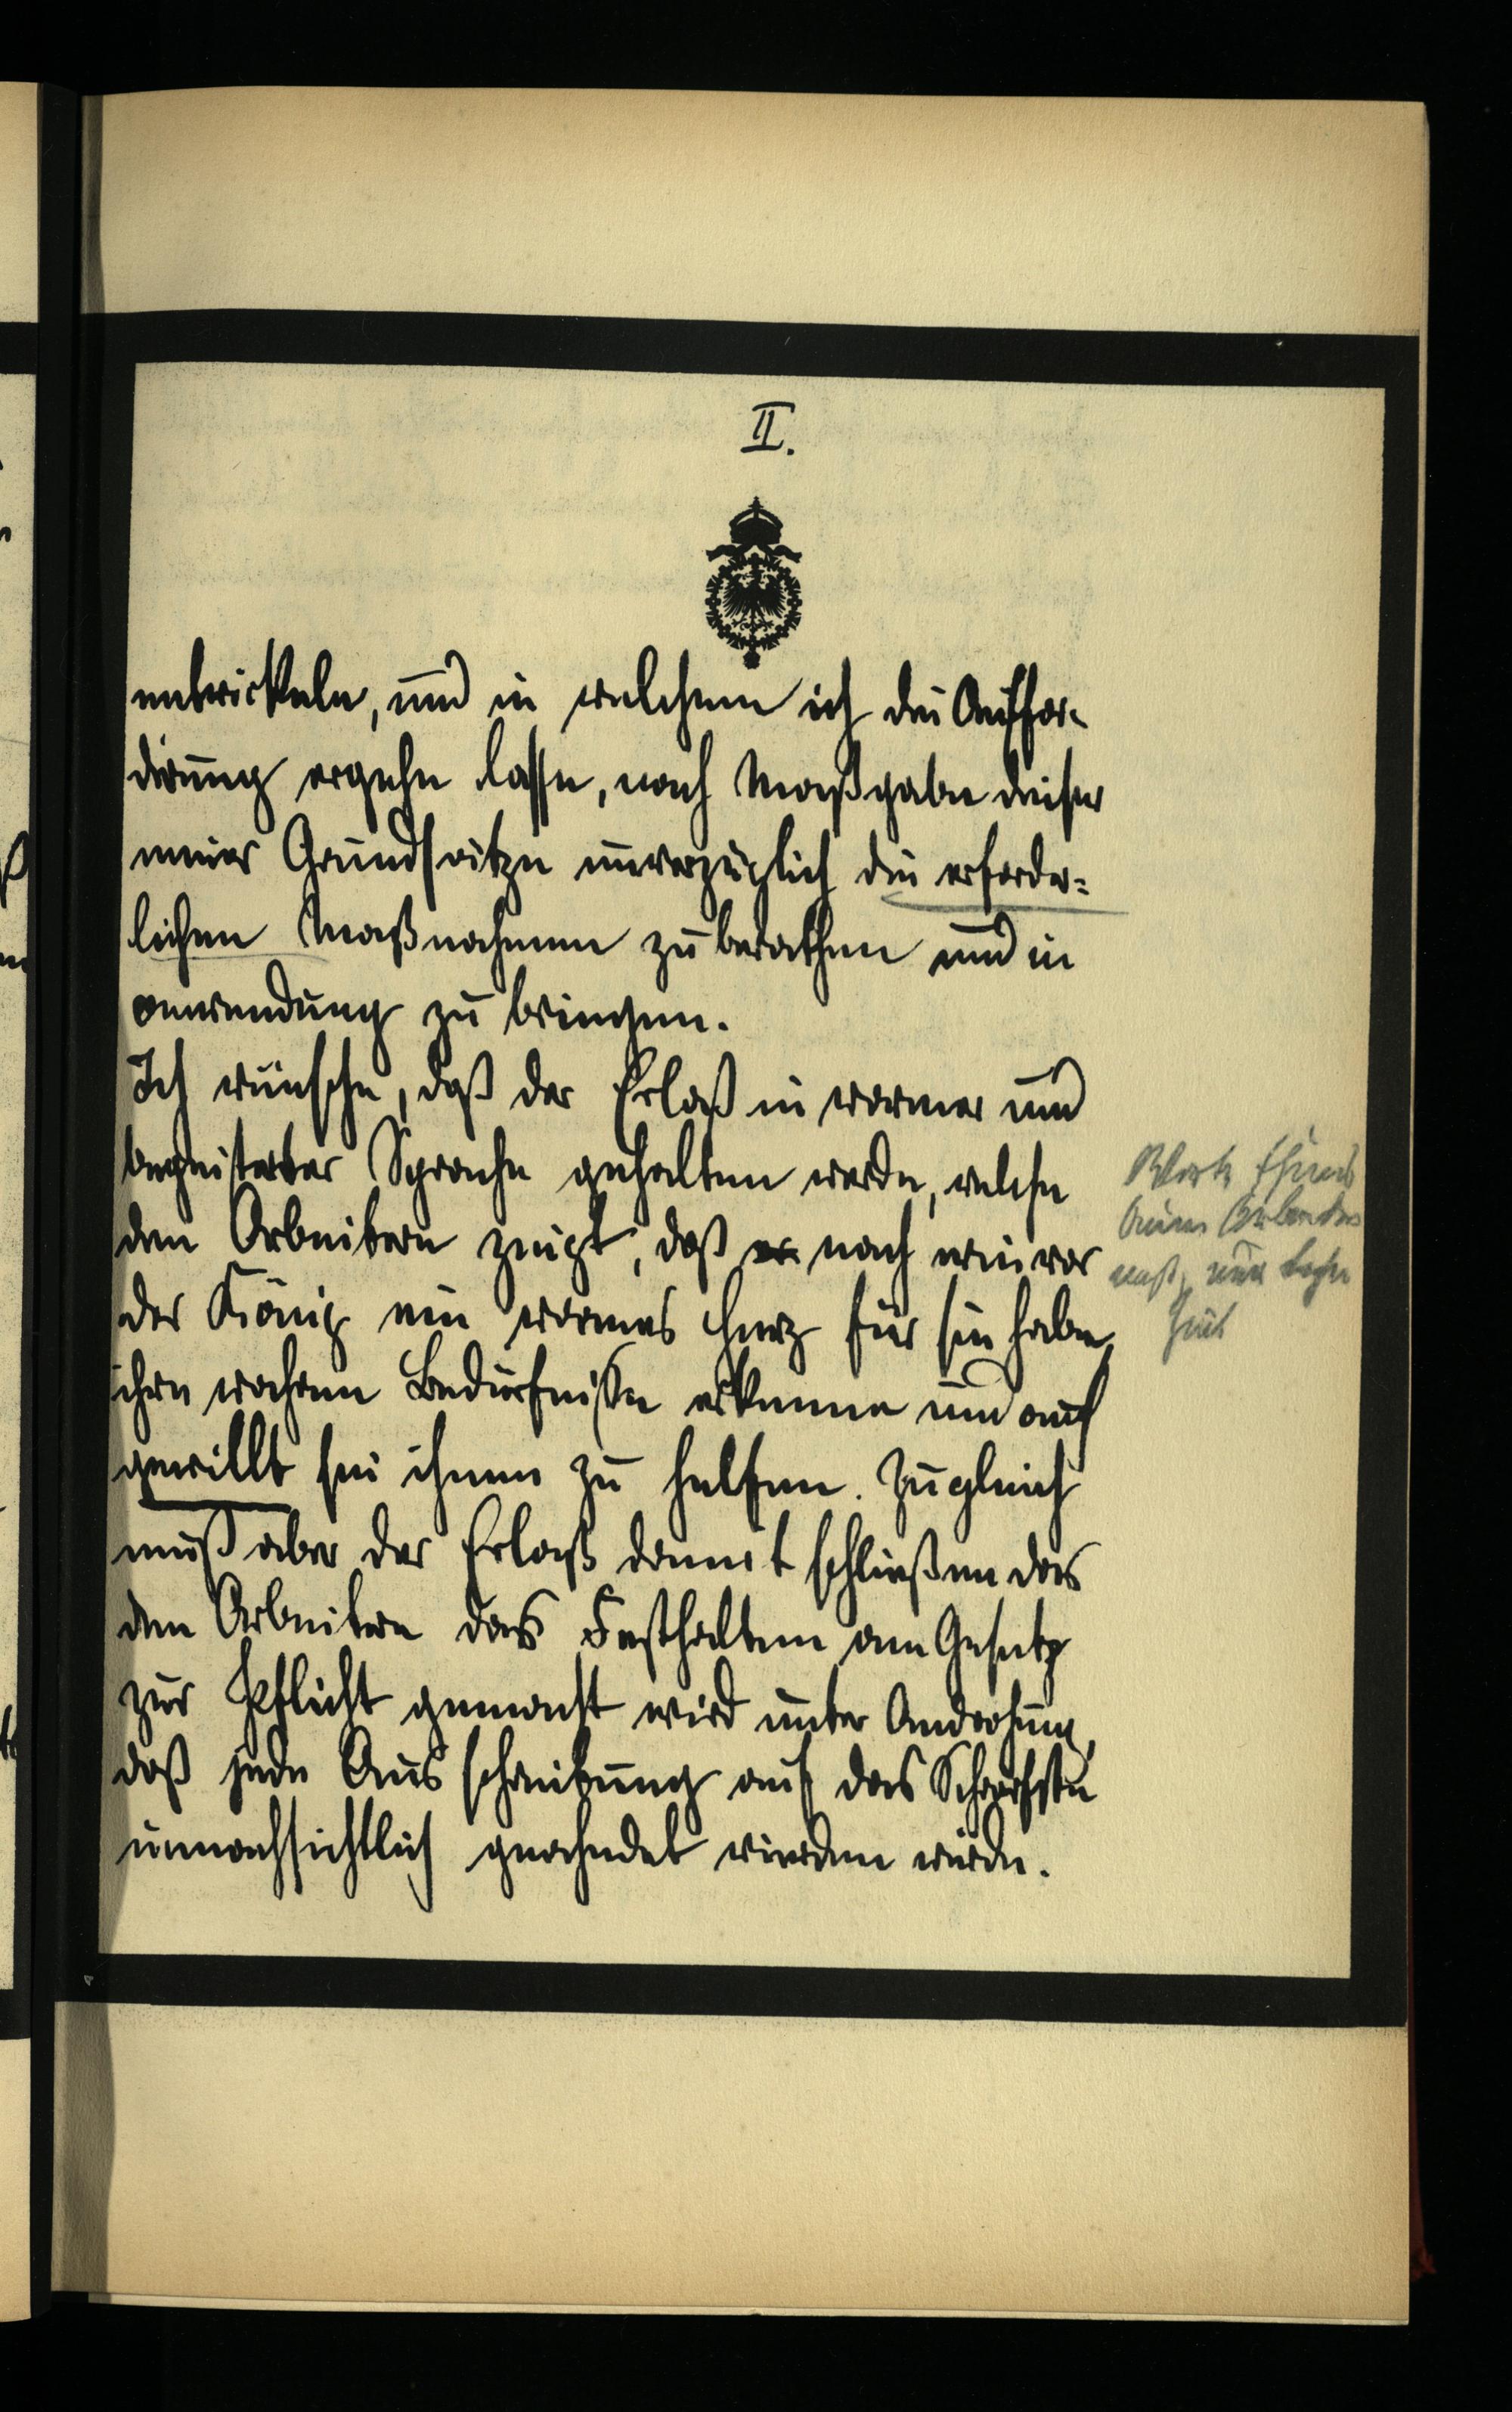 II.
entwickele, und in welchem ich die Auffor-
derung ergehe lasse, nach Maßgabe dieser
meiner Grundsätze unverzüglich die erforder=
lichen Maßnahmen zu berathen und in
anwendung zu bringen.
Ich wünsche, daß der Erlaß in warmer und
begeisterter Sprache gehalten werde, welche
den Arbeitern zeigt, daß nach wie vor
der König ein warmes Herz für sie habe,
ihre wahren Bedürfniße erkenne und auch
gewillt sei ihnen zu helfen. Zugleich
muß aber der Erlaß damit schließen das
den Arbeitern das Festhalten am Gesetz
zur Pflicht gemacht wird unter Androhung,
daß jede Ausschreitung auf das Schärfste
unnachsichtlich geahndet werden würde.
Worte
keinen Arbeiter
nur